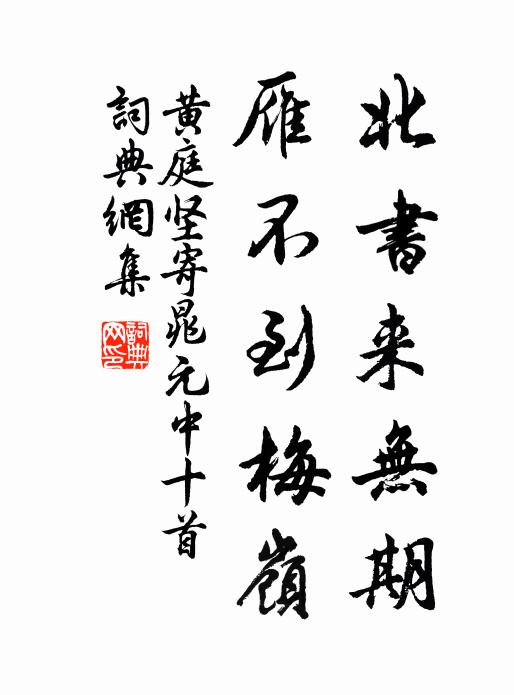 北書来無期
雁不到梅嶺
黄庭坚寄晁元中十首
詞典網集
詞典网印